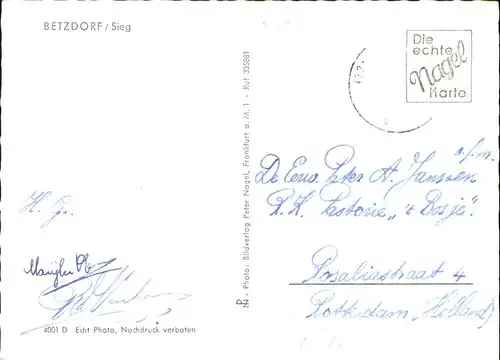 BETZDORF / Sieg
Die
echte
Nagel
Karte
PN - Photo: Bildverlag Peter Nagel, Frankfurt a. M. 1 - Ruf 335981
De Eerw. Pater A. Janssen
R. K. Pastorie „'t Bosje"
Rosaliastraat 4
Rotterdam (Holland)
H. Gr.
4001 D Echt Photo, Nachdruck verboten